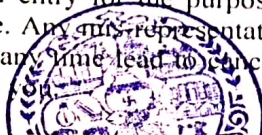 entry for the purpos
e. Any mis-representat
any time lead to canc